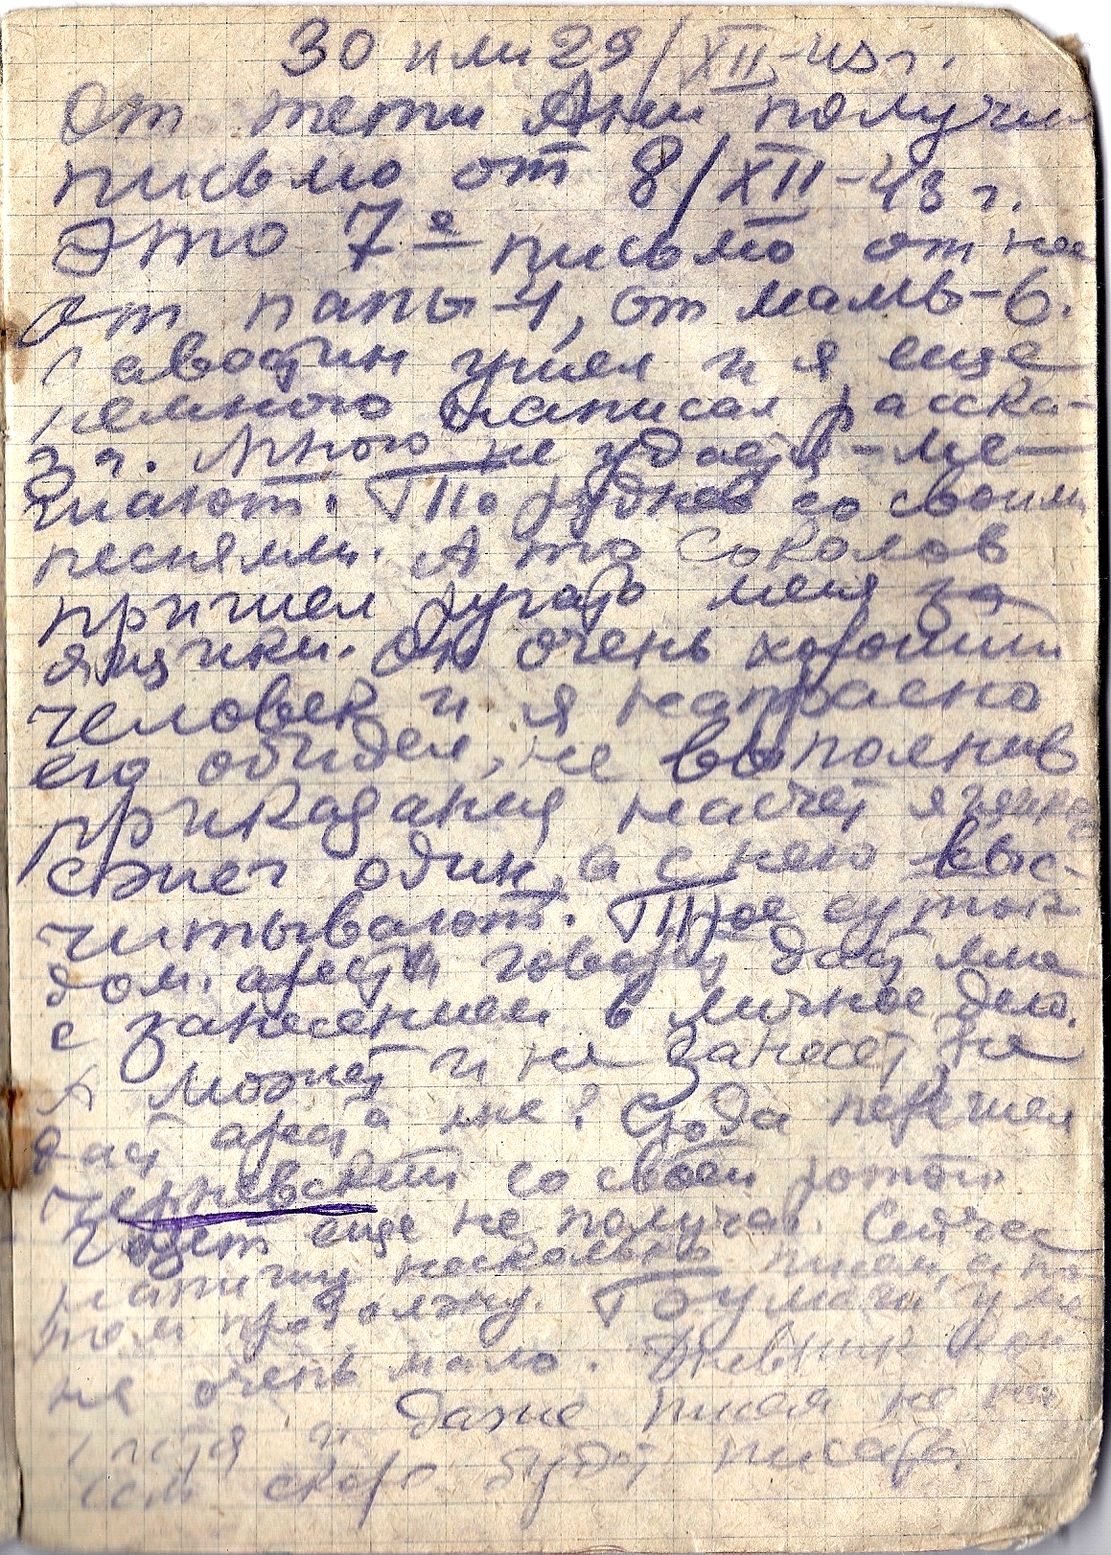 30 или 29/XII-43 г.
От тети Ани получил
письмо от 8/XII-43 г.
Это 7-е письмо от нее
от папы-1, от мамы-6.
ушел и я еще
немного написал расска-
за. Много не удается - ме-
шают. То Руднев со своими
песнями. А то Соколов
пришел ругать меня за
ящики. Он очень хороший
человек и я напрасно
его обидел, не выполнив
приказания насчет ящиков
сжег один, а с него выс-
читывают. Трое суток
дом. ареста говорит даст мне
с занесением в личное дело.
А может и не занесет и не
даст арест а мне? Сюда перешел
Черневский со своей ротой
Газет еще не получал. Сейчас
напишу несколько писем, а по-
том продолжу. Бумаги у ме-
ня очень мало. Дневник
и даже писем не на
скоро будет писать.